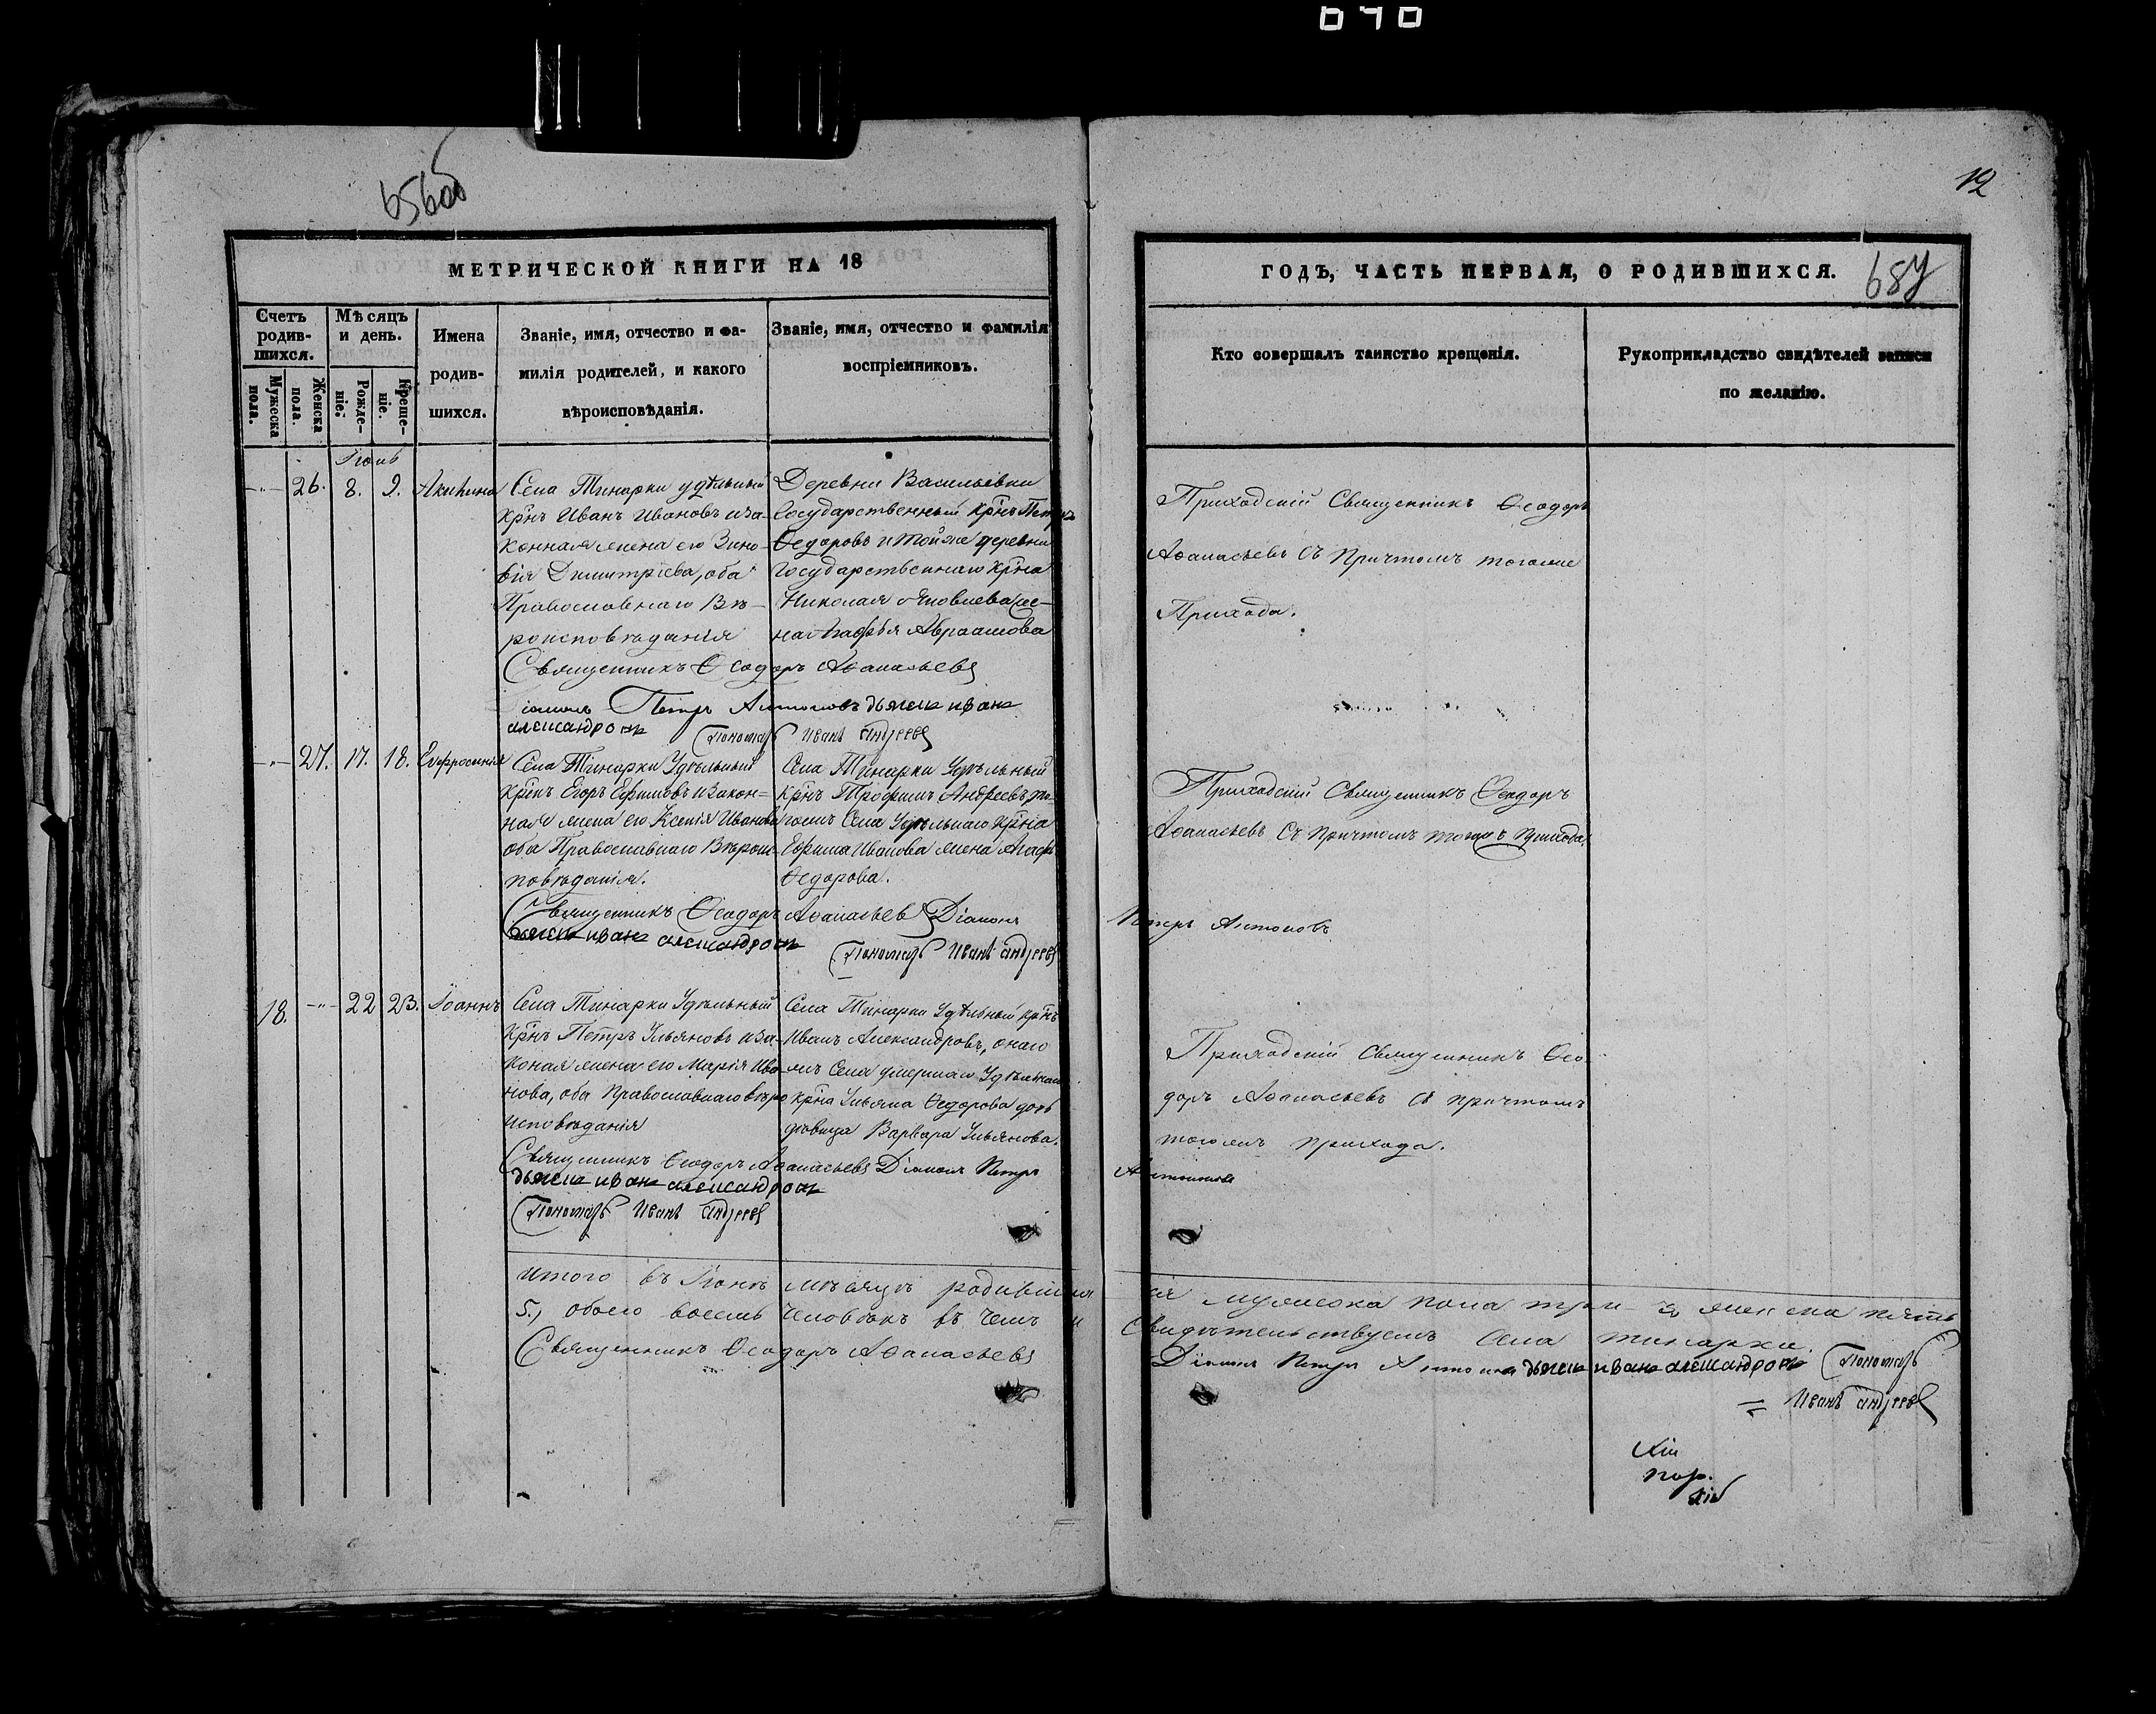 656об
12
МЕТРИЧЕСКОЙ КНИГИ НА 18
ГОДЪ, ЧАСТЬ ПЕРВАЯ, О РОДИВШИХСЯ.
657
Счетъ родив-шихся.
Мужеска пола.
Женска пола.
Мѣсяцъ и день.
Рожде-ніе.
Креще-ніе.
Имена родив-шихся.
Званіе, имя, отчество и фа-
милія родителей, и какого
вѣроисповѣданія.
Званіе, имя, отчество и фамилія
воспріемниковъ.
Кто совершалъ таинство крещенія.
Рукоприкладство свидѣтелей записи
по желанію.
Іюнь
26. 8. 9. Акилина
Села Тинарки удѣльный
крнъ Иванъ Ивановъ иза-
конная жена его Зино-
вія Димитріева, оба
Православнаго Вѣ-
роисповѣданія
Деревни Васильевки
Государственный крнъ Петръ
Ѳедоровъ и тойже деревни
Государственнаго крна
Николая Яковлева же-
на Агафья Авраамова
Священникъ Ѳеодоръ Аѳанасьевъ
Діаконъ Петръ Антоновъ дьячекъ иванъ
александровъ Пономарь Иванъ Андреевъ
Приходскій Священникъ Ѳеодоръ
Аѳанасьевъ съ Причтомъ тогоже
Прихода.
27. 17. 18. Евфросинія
Села Тинарки Удѣльный
крнъ Егоръ Ефимовъ изакон=
ная жена его Ксенія Иванова
оба Православнаго Вѣроис-
повѣданія.
Села Тинарки Удѣльный
крнъ Трофимъ Андреевъ,
Села Удѣльнаго крна
Ефима Иванова жена Агафья
Ѳедорова.
Священникъ Ѳеодоръ Аѳанасьевъ Діаконъ
Петръ Антоновъ
дьячекъ иванъ александровъ
Пономарь Иванъ Андреевъ
Приходскій Священникъ Ѳеодоръ
Аѳанасьевъ съ причтомъ тогоже прихода.
18. 22 23. Іоаннъ
Села Тинарки Удѣльный
крнъ Петръ Ульяновъ иза-
коная жена его Марія Ива-
нова, оба Православнаго вѣро
исповѣданія
Села Тинарки Удѣльный крнъ
Иванъ Александровъ, онаго
жъ Села умершаго Удѣльнаго
крна Ульяна Ѳедорова дочь
дѣвица Варвара Ульянова.
Священникъ Ѳеодоръ Аѳанасьевъ Діаконъ Петръ
Антоновъ
дьячекъ иванъ александровъ
Пономарь Иванъ Андреевъ
Приходскій Священникъ Ѳео-
доръ Аѳанасьевъ съ причтомъ
тогожъ прихода.
Итого въ Іюнѣ мѣсяцѣ родившихся мужеска пола три – 3, женска пять
5., обоего восемь человѣкъ въ чемъ и Свидѣтельствуемъ Села Тинарки.
Священникъ Ѳеодоръ Аѳанасьевъ Діаконъ Петръ Антоновъ дьячекъ иванъ александровъ Пономарь
= Иванъ Андреевъ